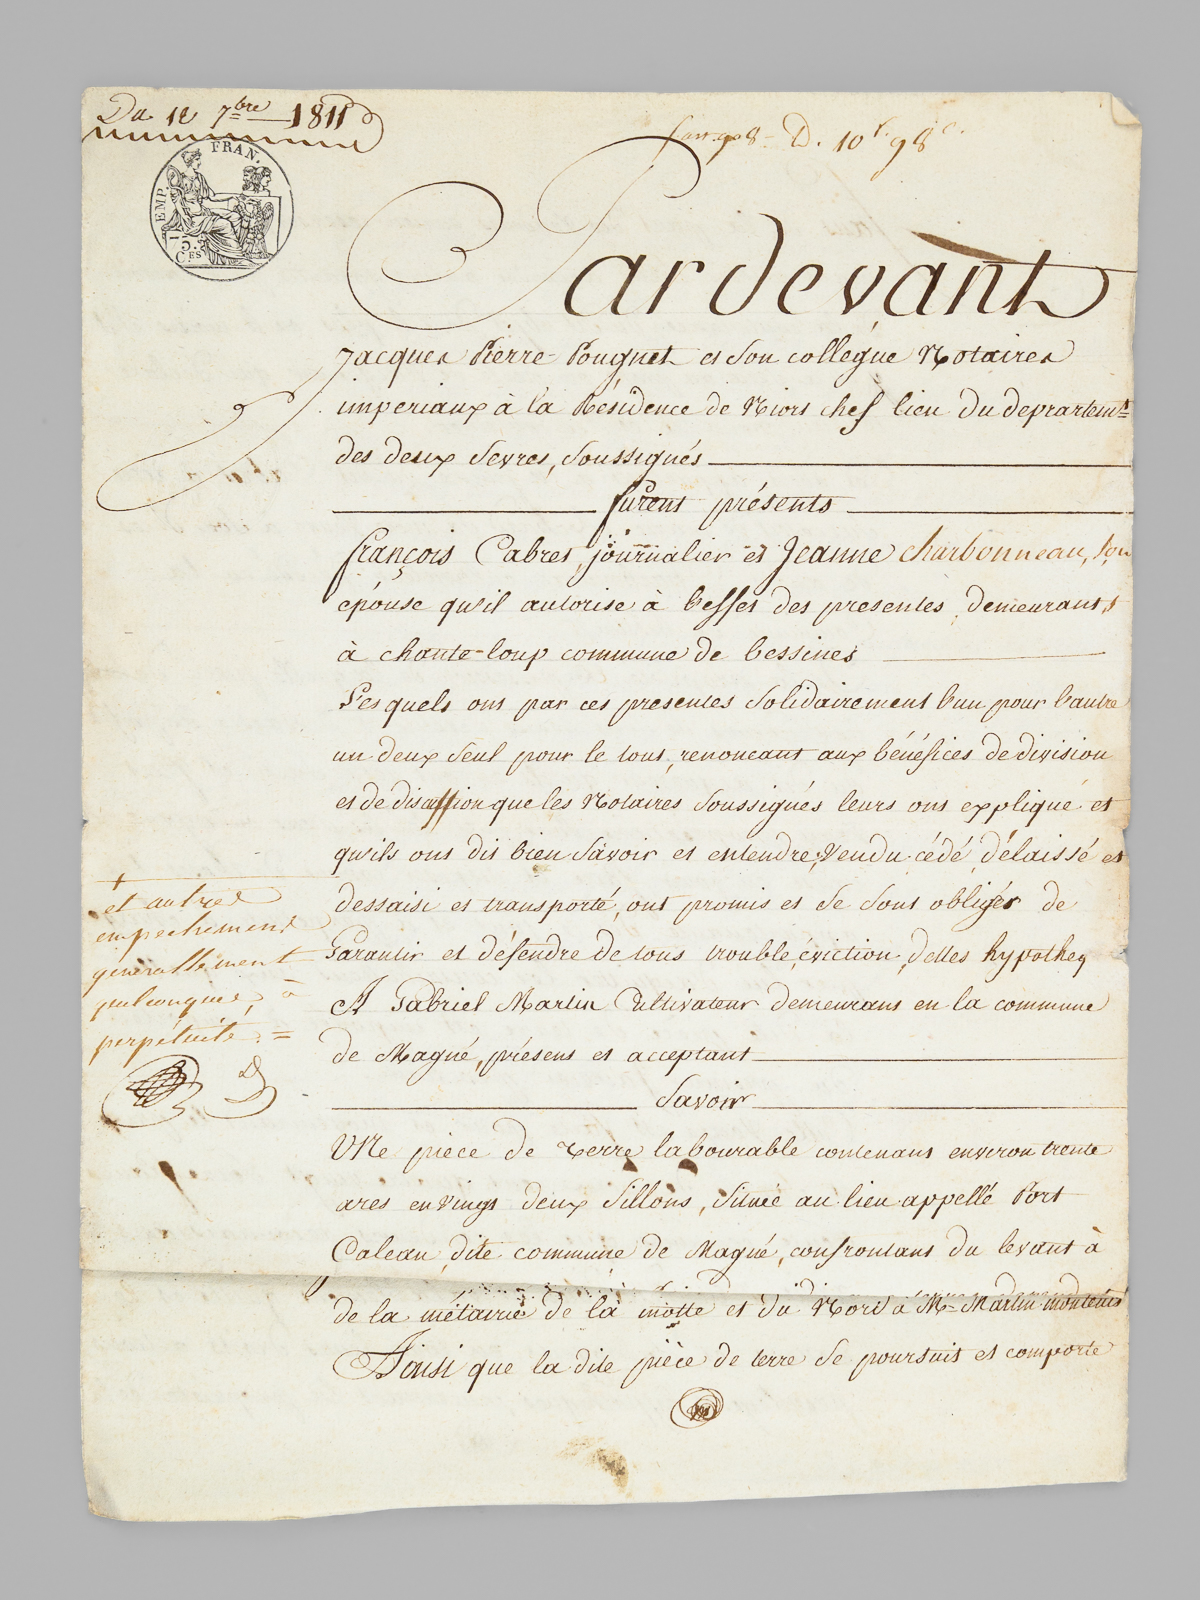 Du 12 7bre 1811
D. 10f. 98c.
EMP. FRAN.
75.
CES
Pardevant
Jacques Pierre Pougnet et son collègue Notaires
imperiaux à la Résidence de Niort chef lieu du deprartemt
des deux Sevres, soussignés
furent présents
françois Cabret, journalier et Jeanne charbonneau, son
épouse qu'il autorise à l'effet des presentes, demeurants
à chante-loup commune de bessines
Lesquels ont par ces presentes solidairement l'un pour l'autre
un deux seul pour le tout, renoncant aux bénéfices de division
et de discussion que les Notaires soussignés leurs ont expliqué et
qu'ils ont dit bien savoir et entendre, Vendu, cédé, délaissé et
dessaisi et transporté, ont promis et se sont obligés de
Garantir et défendre de tous trouble, éviction, dettes hypotheq
et autres
empechements
generallement
quelconques, à
perpétuité. =
A Gabriel Martin Cultivateur demeurant en la commune
de Magné, présent et acceptant
Savoir
UNe pièce de terre labourable contenant environ trente
ares en vingt deux sillons, située au lieu appellé Port
Caleau, dite commune de Magné, confrontant du levant à
de la métairie de la motte et du Nord à Mr Martin monteuil
Ainsi que la dite pièce de terre se poursuit et comporte